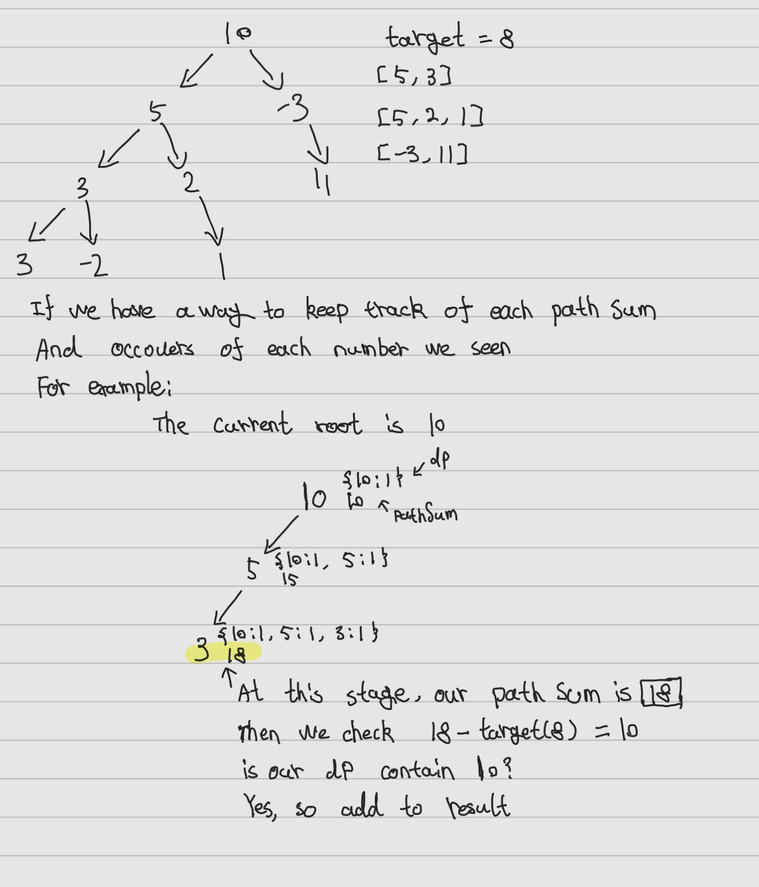 10
target = 8
[5, 3]
5
-3
[5, 2, 1]
[-3, 11]
3
2
11
3
-2
1
If we have a way to keep track of each path sum
And occouers of each number we seen
For example:
The current root is 10
10 {10:1} dp
10 pathSum
5 {10:1, 5:1}
15
3 {10:1, 5:1, 3:1}
18
At this stage, our path sum is 18
Then we check 18 - target(8) = 10
is our dp contain 10?
Yes, so add to result